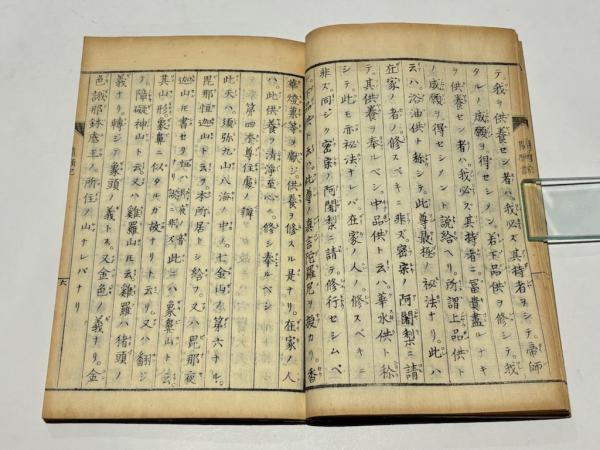 テ我ヲ供養セン者ハ。我必ズ其持者ヲシテ。帝師
タルノ成願ヲ得セシメン。若王品供ヲ修シテ。我
ヲ供養セン者ハ。我必ズ其持者ニ冨貴盡ルナキ
ノ成願ヲ得セシメント説給ヘリ。所謂上品供ト
云ハ。浴油供ト称シテ。此尊最極ノ秘法ナリ。此ハ
在家ノ者ノ修スベキニ非ズ。密宗ノ阿闍梨ニ請
テ。其供養ヲ奉ルベシ。中品供ト云ハ。華水供ト称
シテ。此モ亦秘法ナレバ。在家ノ人ノ修スベキニ
非ズ。同ジク密宗ノ阿闍梨ニ請テ。修行セシムベ
シ。此尊ノ真言陀羅尼ヲ殺カリ。香
華燈菓等ヲ獻ジ。供養ヲ修スル是ナリ。在家ノ人
ハ此供養ヲ清淨至心ニ修シ奉ルベシ
第四 本尊住處ノ辨
此天ハ。須弥九山八海ノ中ノ。七金山ノ第六ナル。
毘那恒迦山ト云ヲ本所居トシ給ヲ。又ハ毘那夜
迦山トモ書セタリ。此ニハ象鼻山ト云
其山ノ形象鼻ニ似タルカ故ナリト云リ。又ハ翻ジ
テ障礙神山ト云。又ハ雞羅山ト云。雞羅ハ猪頭ノ
義ナリ。轉ジテ象頭ノ義トス。又金色ノ義ナリ。金
色ノ識那鉢底王ノ所住ノ山ナレバナリ
六